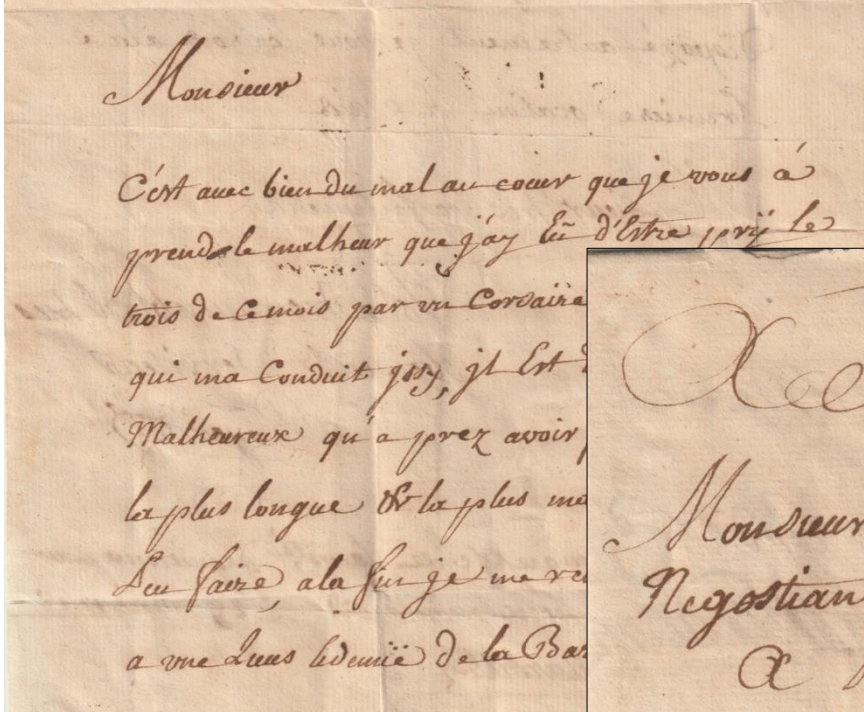 Monsieur
C'est avec bien du mal au coeur que je vous á
prend le malheur que j'ay Eü d'Estre priÿ Le
trois de Ce mois par vn Corsaire
qui ma Conduit jssy, jl Est
Malheureux qu'a prez avoir
la plus longue & la plus ma
faire, a la fin je me
a vne Lieus & demïë de la Bar
Monsieur
Negostian
A